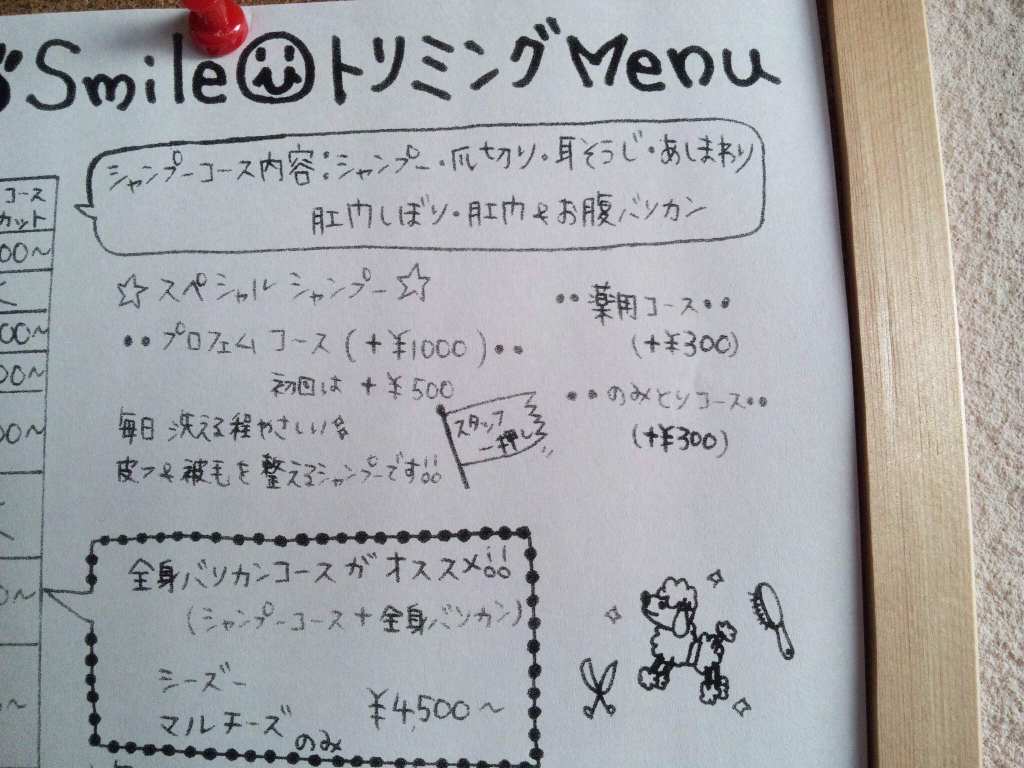 Smile トリミングMenu
シャンプーコース内容:シャンプー・爪切り・耳そうじ・あしまわり
肛門しぼり・肛門&お腹バリカン
コース
カット
00~
00~
00~
0~
☆スペシャルシャンプー☆
••プロフェムコース(+¥1000)••
初回は +¥500
毎日 洗える程やさしい
皮フ&被毛を整えるシャンプーです!!
スタッフ
一押し
••薬用コース••
(+¥300)
••のみとりコース••
(+¥300)
全身バリカンコースがオススメ!!
(シャンプーコース+全身バリカン)
シーズー
マルチーズ のみ
¥4,500~